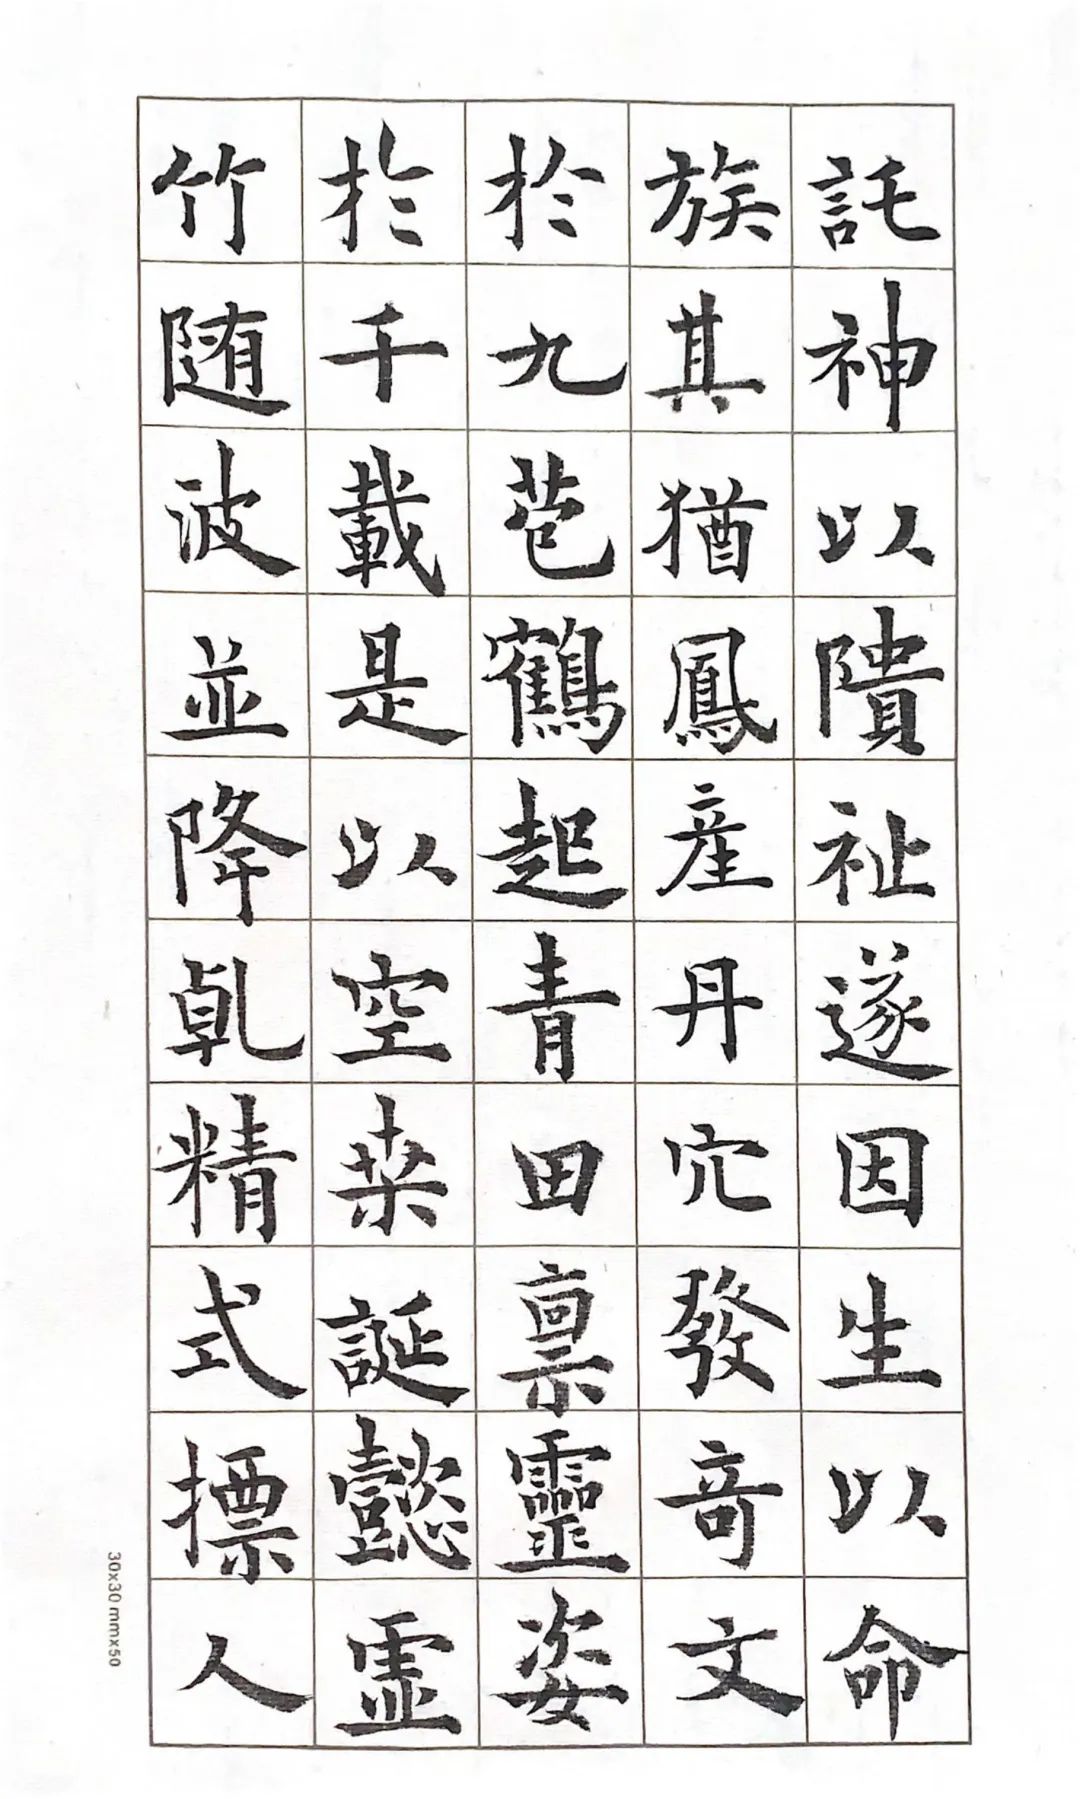 託神以隤祉遂因生以命
族其猶鳳産丹穴發竒文
於九苞鶴起青田禀靈姿
於千載是以空桒誕懿虚
竹随波並降乹精式摽人
30x30 mmx50